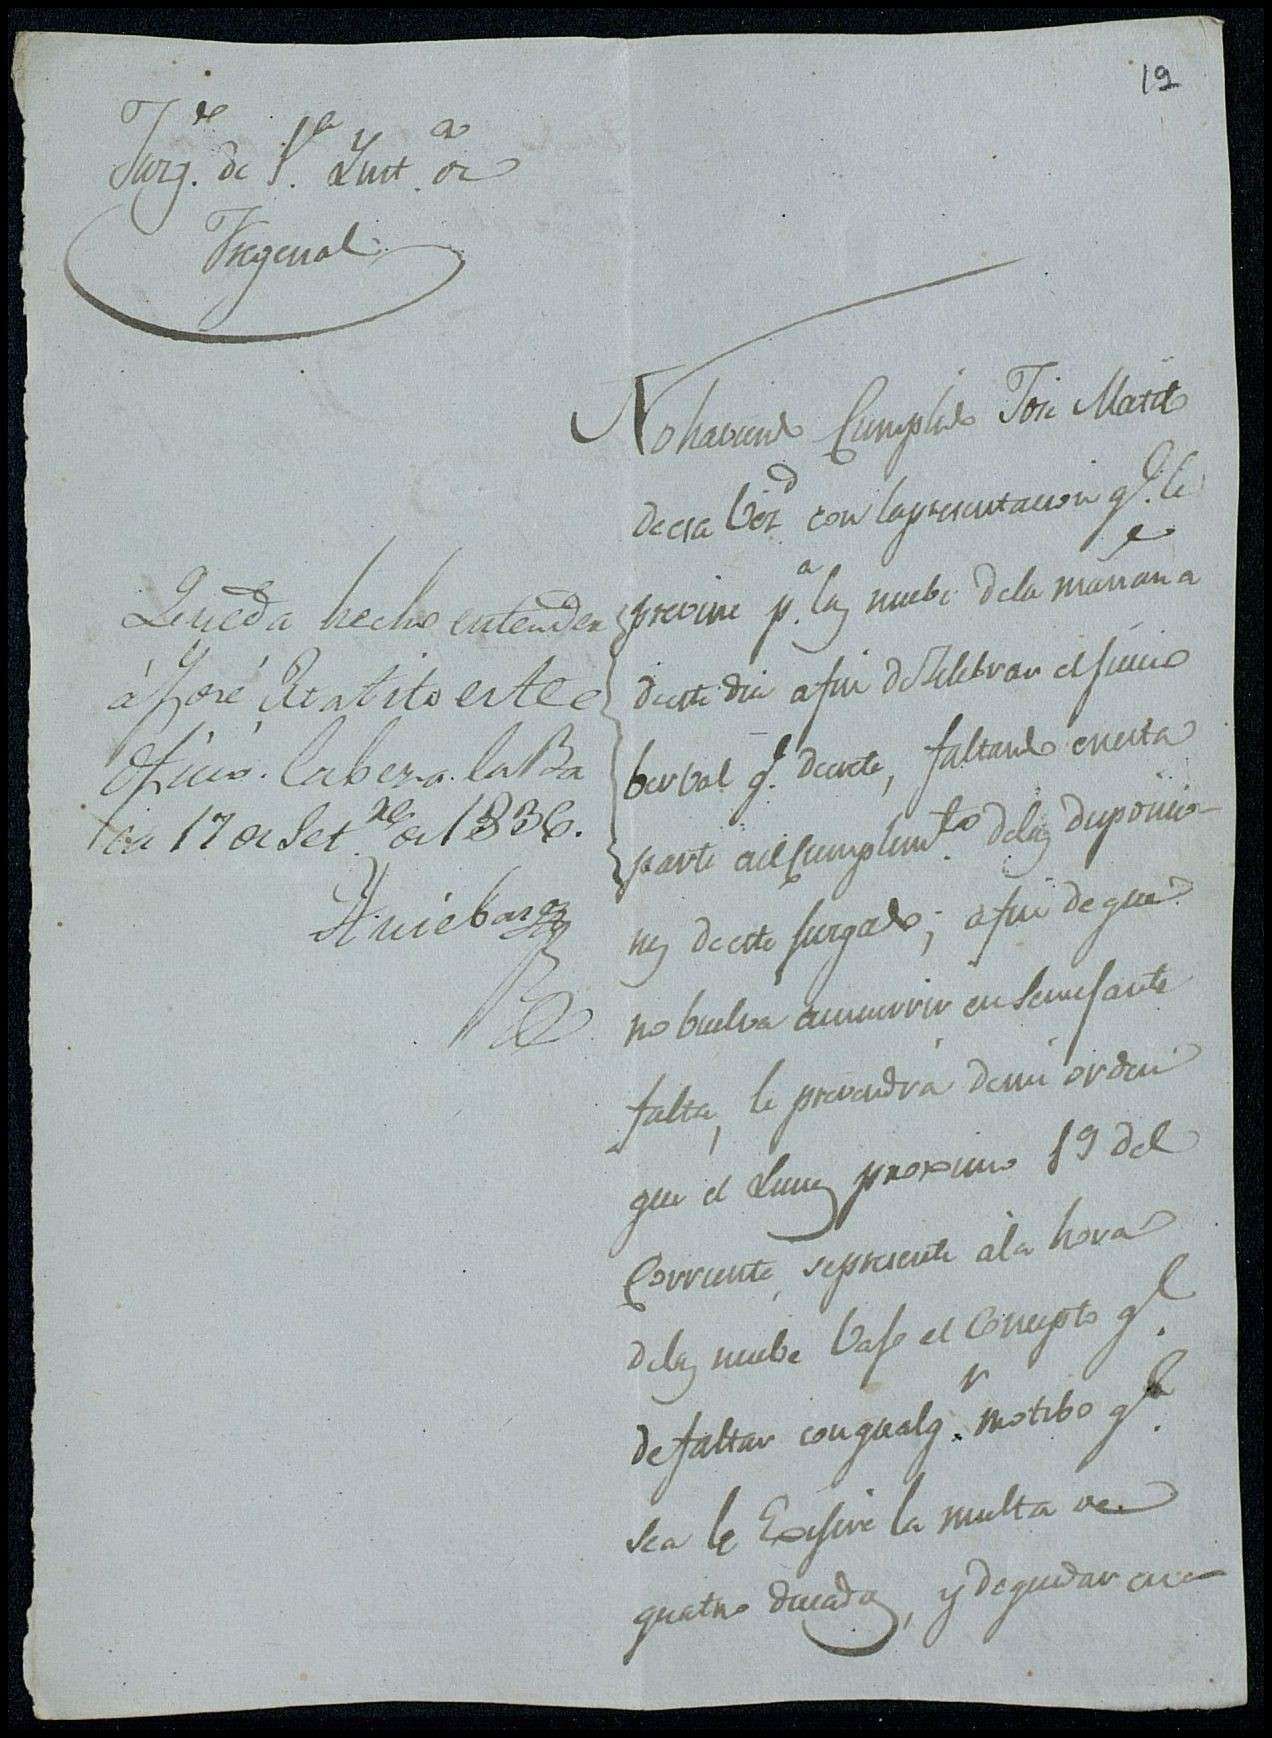 19
Juzg.do de 1.a Ynst.a de
Fregenal
No haviend.o Cumplido Jose Matit.o
de esa Vez.d con la presentacion q.e le
previne p.a las nuebe de la mañana
de este dia a fin de Zelebrar el Juicio
berbal q.e decrete, faltando en esta
parte al Cumplim.to de las disposicio-
nes de este Juzgado; a fin de que
no buelva a incurrir en Semejante
falta, le prevendrá de mi orden
que el Lunes proximo 19 del
Corriente, se presente a la hora
de las nuebe bajo el Concepto q.e
de faltar con qualq.r motibo q.e
sea le Exijire la multa de
quatro ducados, y de quedar en
Queda hecho entender
á José Matito este
Oficio. Cabeza la Ba
ca 17 de Set.re de 1836.